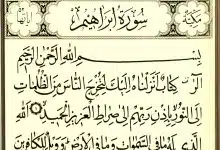 مكية
سورة إبراهيم
آياتها
بسم الله الرحمن الرحيم
الر كتاب أنزلناه إليك لتخرج الناس من الظلمات
إلى النور بإذن ربهم إلى صراط العزيز الحميد
الله الذي له ما في السماوات وما في الأرض وويل للكافرين